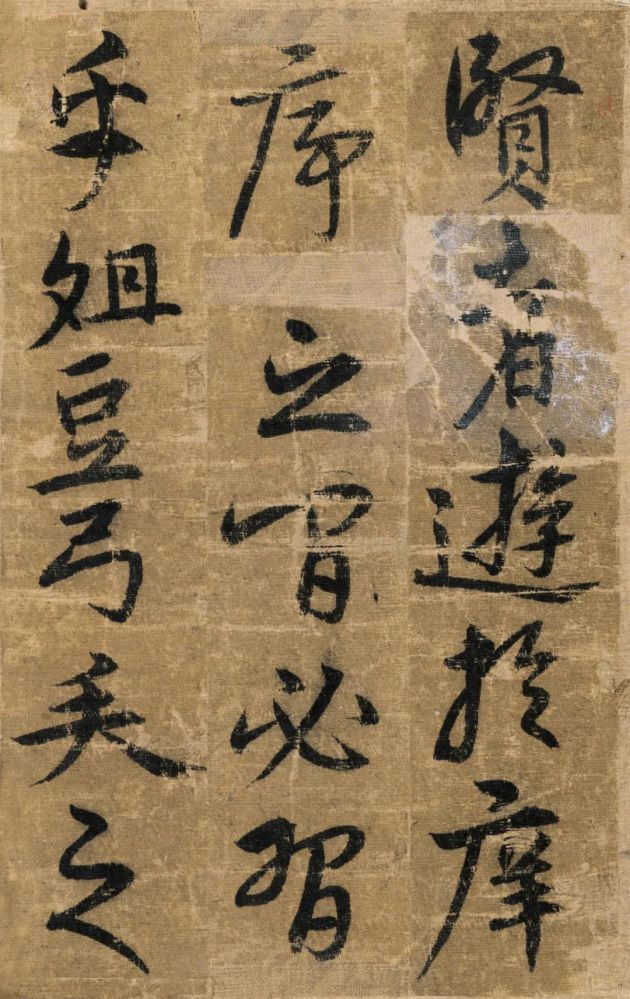 賢者遊於庠
序之間必習
乎俎豆弓矢之